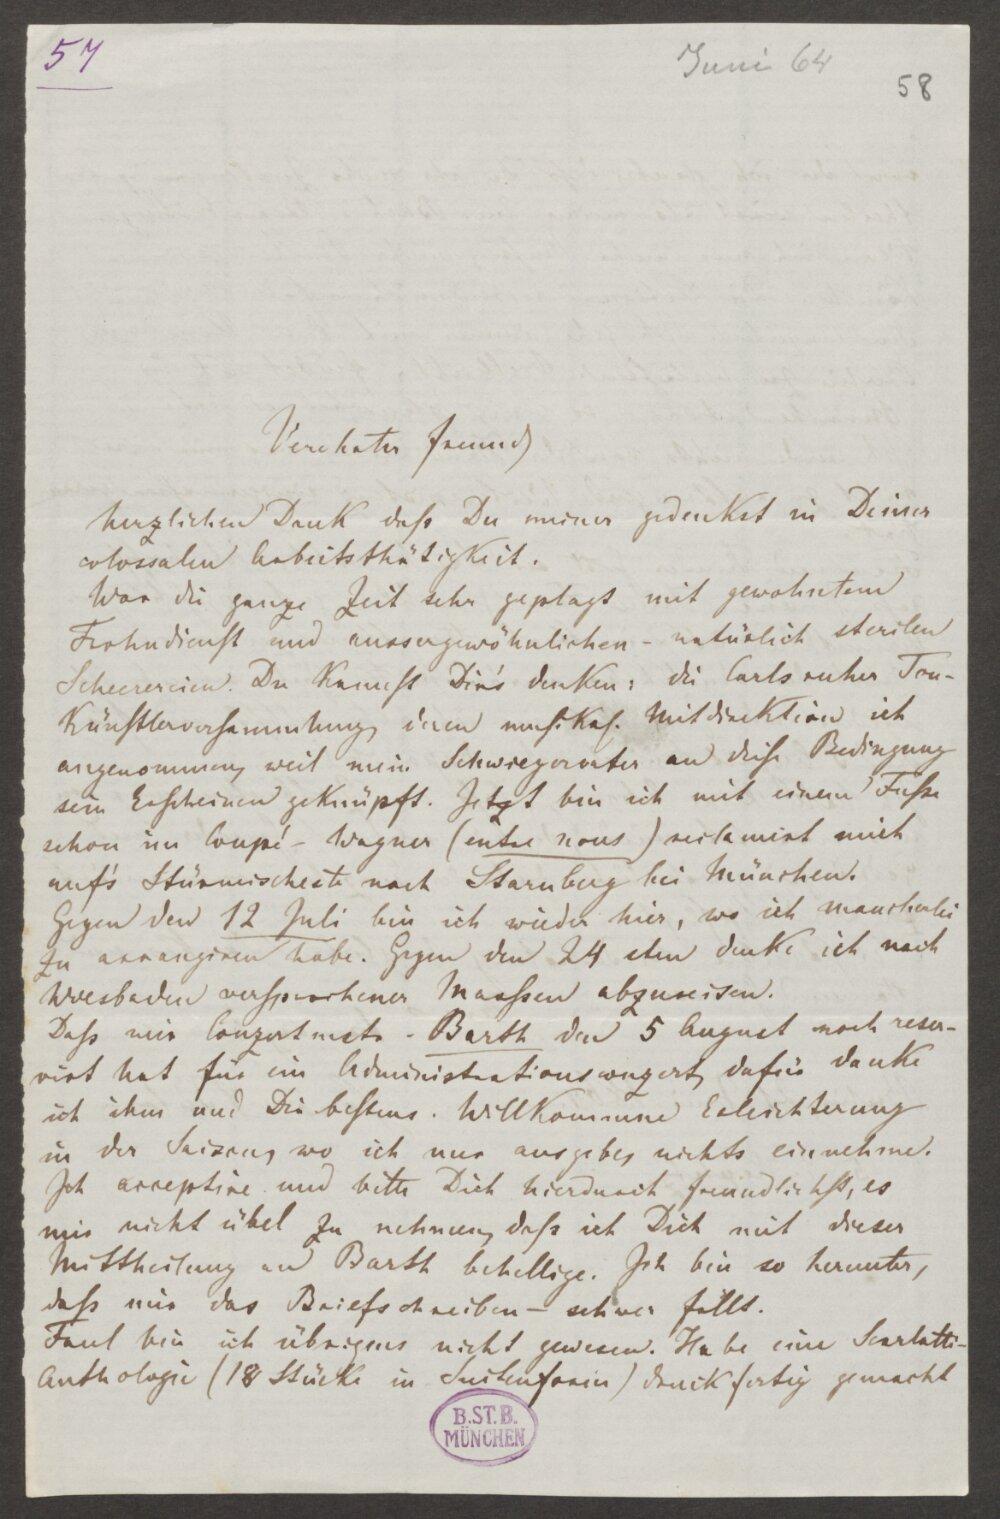 57
Juni 64
58
Verehrter Freund
herzlichen Dank daß Du meiner gedenkst in Deiner
colossalen Arbeitsthätigkeit.
War die ganze Zeit sehr geplagt mit gewohntem
Frohndienst und aussergewöhnlichen - natürlich sterilen
Scheerereien. Du kannst Dir's denken: die Carlsruher Ton-
künstlerversammlung deren musikal. Mitdirektion ich
angenommen, weil mein Schwiegervater an diese Bedingung
sein Erscheinen geknüpft. Jetzt bin ich mit einem Fuße
schon im Coupé - Wagner (entre nous) reclamirt mich
auf's Stürmischeste nach Starnberg bei München.
Gegen den 12 Juli bin ich wieder hier, wo ich mancherlei
zu arrangiren habe. Gegen den 24 sten denke ich nach
Wiesbaden versprochener Maaßen abzureisen.
Daß mir Conzertmstr. Barth den 5 August noch reser-
virt hat für ein Administrationsconzert, dafür danke
ich ihm und Dir bestens. Willkommene Erleichterung
in der Saison, wo ich nur ausgebe, nichts einnehme.
Ich acceptire und bitte Dich hierdurch freundlichst, es
mir nicht übel zu nehmen, daß ich Dich mit dieser
Mittheilung an Barth behellige. Ich bin so herunter,
daß mir das Briefschreiben - schwer fällt.
Faul bin ich übrigens nicht gewesen. Habe eine Scarlatti-
Anthologie (18 Stücke in Suitenform) druckfertig gemacht
B.ST.B.
MÜNCHEN